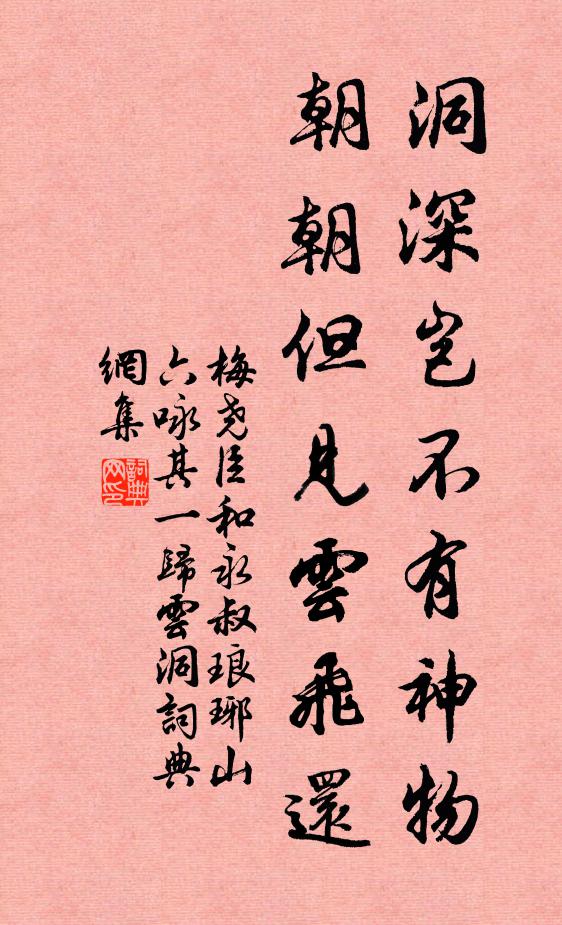 洞深豈不有神物
朝朝但見雲飛還
梅堯臣和永叔琅琊山
六咏其一歸雲洞詞典
網集
詞典
网印